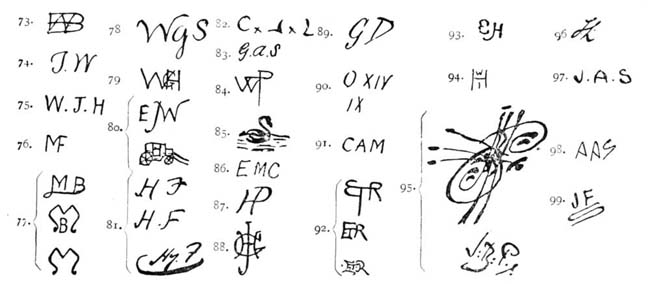 73.
74. J.W
75. W.J.H
76. MF
77. MB
78 WgS
79 WCH
80. EJW
81. H F
H.F
Hy F
82. C
83. G.a.S
84. WP
85.
86. EMC
87. HP
88.
89. GD
90. O XIV
IX
91. CAM
92. ETR
ETR
ETR
93. EH
94. H
95.
96
97. J.A.S
98. AAS
99. JF